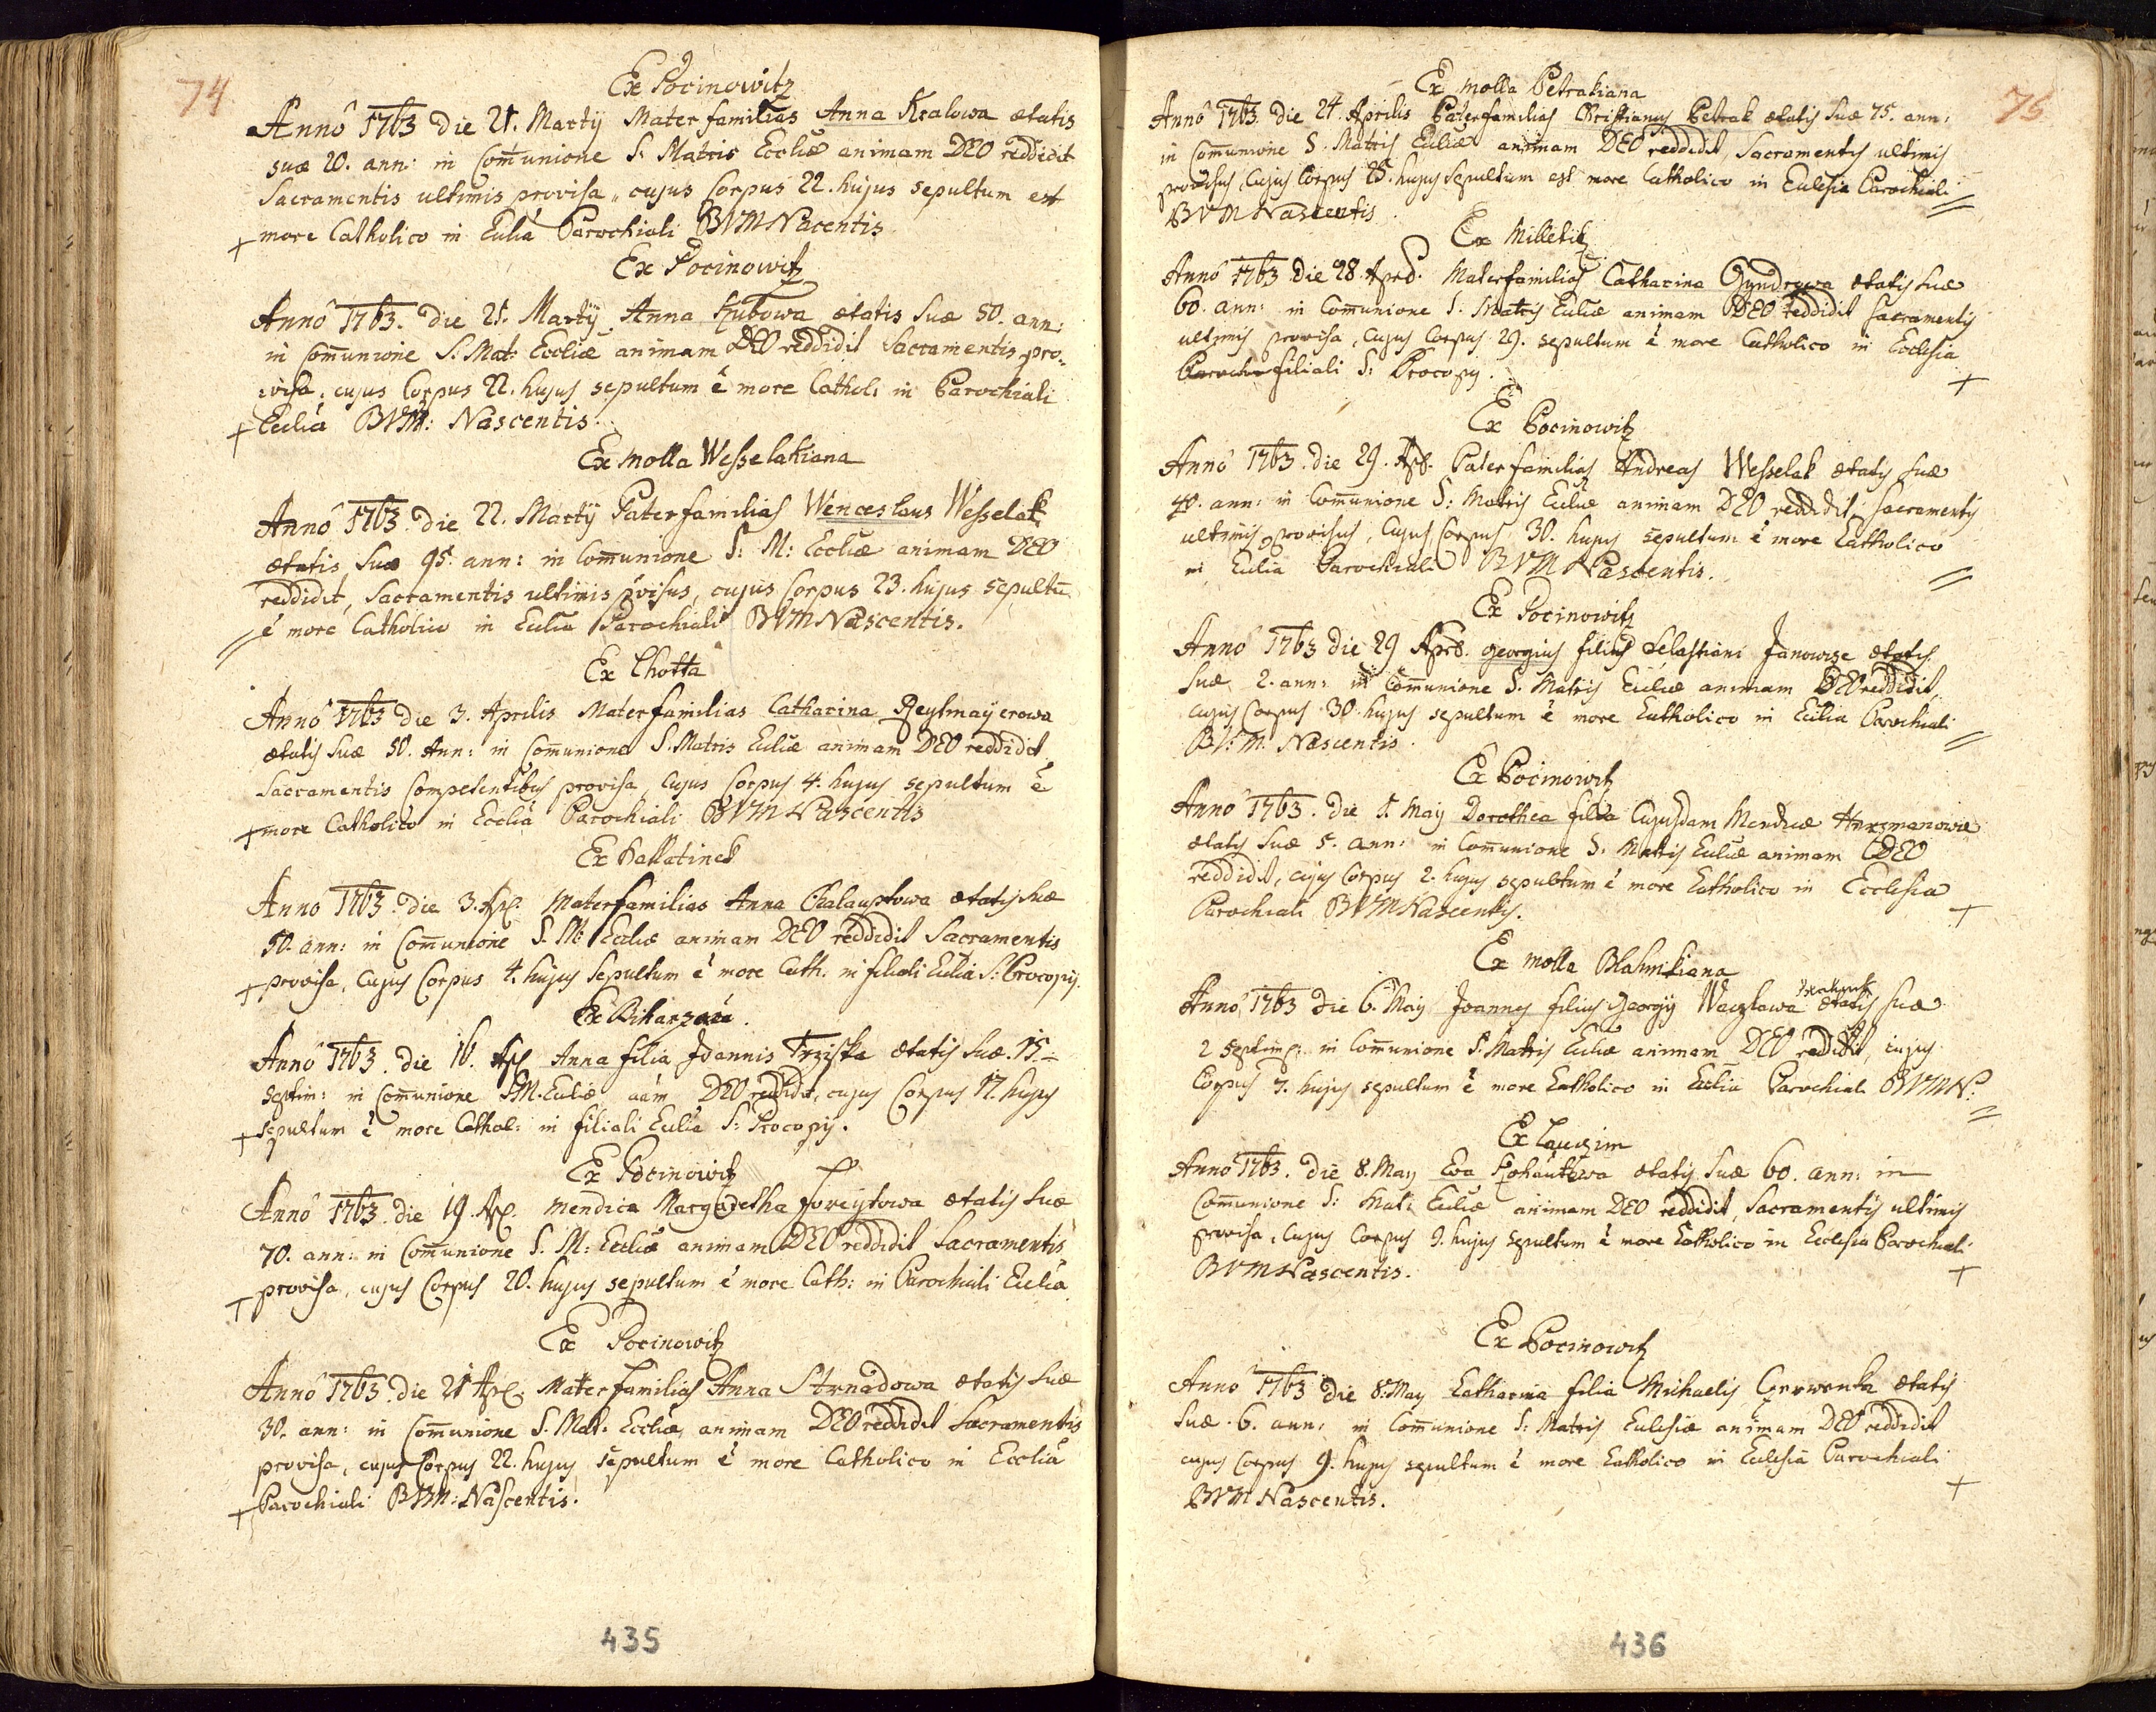 74
Ex Pocinowitz
Annô 1763 Die 21. Martÿ Mater familias Anna Kralowa ætatis
suæ 20. ann: in Com̄unione S. Matris Eccliæ animam DEO reddidit
Sacramentis ultimis provisa, cujus Corpus 22. hujus sepultum est
+ more Catholico in Eccliâ Parochiali BVM Nacentis
Ex Pocinowitz
Annô 1763. die 21. Martÿ Anna Kubowa ætatis suæ 50. ann:
in Com̄unione S. Mat: Eccliæ animam DEO reddidit Sacramentis pro-
:visa, cujus Corpus 22. hujus sepultum ê more Cathol: in Parochiali
+ Eccliâ BVM: Nascentis.
Ex molla Wesselakiana
Annô 1763. die 22. Martÿ Paterfamilias Wenceslaus Wesselak
ætatis suæ 95. ann: in Com̄unione S: M: Eccliæ animam DEO
reddidit, Sacramentis ultimis p̄visus, cujus Corpus 23. hujus sepultū
= ê more Catholico in Eccliâ Parochiali BVM Nascentis.
Ex Lhotta
Annô 1763 die 3. Aprilis Materfamilias Catharina Reylmaÿerowa
ætatis suæ 50. Ann: in Com̄unione S. Matris Eccliæ animam DEO reddidit
Sacramentis Competentibus provisa, cujus Corpus 4. hujus sepultum ê
+ more Catholico in Eccliâ Parochiali BVM Nascentis
Ex Kallatinek
Anno 1763. die 3. Apl. Materfamilias Anna Chalauptowa ætatis suæ
50. ann: in Com̄unione S. M: Eccliæ animam DEO reddidit Sacramentis
+ provisa, cujus Corpus 4. hujus sepultum ê more Cath. in filiali Eccliâ S: Procopÿ.
Ex
Annô 1763. die 16. Apl Anna filia Joannis Trziska ætatis suæ. 15.
septim: in Com̄unione S.M. Eccliæ aām DEO reddidit, cujus Corpus 17. hujus
+ sepultum ê more Cathol: in filiali Eccliâ S: Procopÿ.
Ex Pocinowitz
Annô 1763. die 19. Apl. mendica Margaretha Foreytowa ætatis suæ
70. ann: in Com̄unione S. M: Eccliæ animam DEO reddidit Sacramentis
+ provisa, cujus Corpus 20. hujus sepultum ê more Cath: in Parochiali Eccliâ
Ex Pocinowitz
Annô 1763. die 21 Apl. Materfamilias Anna Strnadowa ætatis suæ
30. ann: in Com̄unione S. Mat. Eccliæ animam DEO reddidit Sacramentis
provisa, cujus Corpus 22. hujus sepultum ê more Catholico in Eccliâ
+ Parochiali BVM: Nascentis.
435
75
Ex molla Petrakiana
Annô 1763. die 24. Aprilis Paterfamilias Christianus Petrak ætatis suæ 75. ann:
in Com̄unione S. Matris Eccliæ animam DEO reddidit, Sacramentis ultimis
provisus, Cujus Corpus 25. hujus sepultum est more Catholico in Ecclesia Parochiali
BVM Nascentis =
Ex Milletitz
Annô 1763 Die 28. Apr. Materfamilias Catharina Gyndrowa ætatis suæ
60. ann: in Com̄unione S. Matris Eccliæ animam DEO reddidit Sacramentis
ultimis provisa, Cujus Corpus 29. sepultum ê more Catholico in Ecclesia
filiali S: Procopÿ. +
Ex Pocinowitz
Annô 1763. die 29. Apr. Paterfamilias Andreas Wesselak ætatis suæ
40. ann: in Com̄unione S: Matris Eccliæ animam DEO reddidit, Sacramentis
ultimis provisus, Cujus Corpus 30. hujus sepultum ê more Catholico
in Ecclia Parochiali BVM Nascentis. =
Ex Pocinowitz
Annô 1763 die 29 Apr. Georgius filius Sebastiani Janowze ætatis
suæ 2. ann: in Com̄unione S. Matris Eccliæ animam DEO reddidit,
cujus Corpus 30. hujus sepultum ê more Catholico in Ecclia Parochiali
B.V.M. Nascentis. =
Ex Pocinowitz
Annô 1763. die 1. May Dorothea filia Cujusdam Mendicæ
ætatis suæ 5. ann: in Com̄unione S. Matris Eccliæ animam DEO
reddidit, cujus Corpus 2. hujus sepultum ê more Catholico in Ecclesia
Parochiali BVM Nascentis. +
Ex molla Blahnikiana
Annô 1763 die 6. May Joannes filius Georgÿ Waczlawa ætatis suæ
2 septim: in Com̄unione S. Matris Eccliæ animam DEO reddidit, cujus
Corpus 7. hujus sepultum ê more Catholico in Ecclia Parochial BVMN. =
Ex Lauczim
Annô 1763. die 8. May Eva Kohautowa ætatis suæ 60. ann: in
Com̄unione S: Mat: Eccliæ animam DEO reddidit, Sacramentis ultimis
provisa, Cujus Corpus 9. hujus sepultum ê more Catholico in Ecclesia Parochiali
BVM Nascentis. +
Ex Pocinowitz
Anno 1763 die 8. May Catharina filia Michaelis Czerwenka ætatis
suæ. 6. ann: in Com̄unione S: Matris Ecclesiæ animam DEO reddidit
cujus Corpus 9. hujus sepultum ê more Catholico in Ecclesia Parochiali
BVM Nascentis. +
436